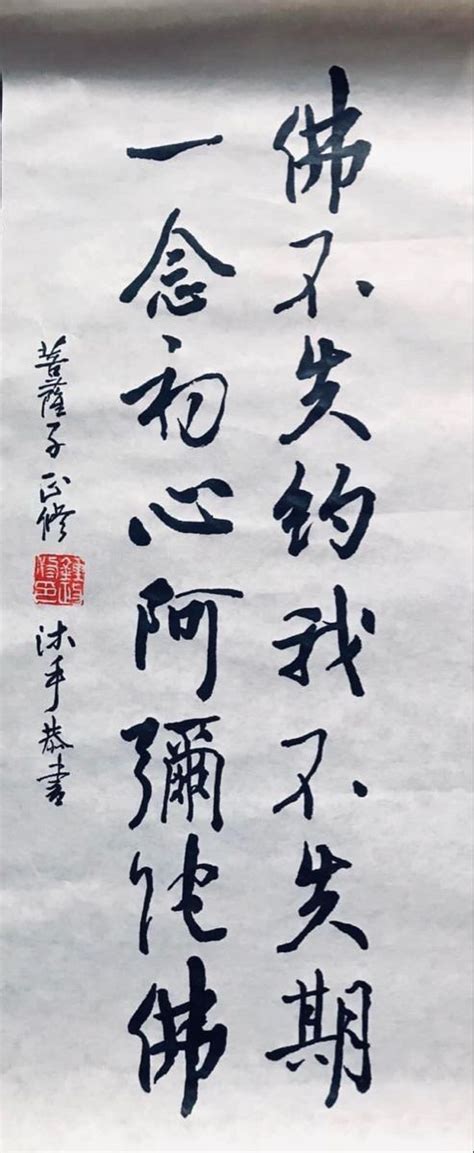 佛不失約我不失期
一念初心阿彌陀佛
菩薩子正修
沐手恭書